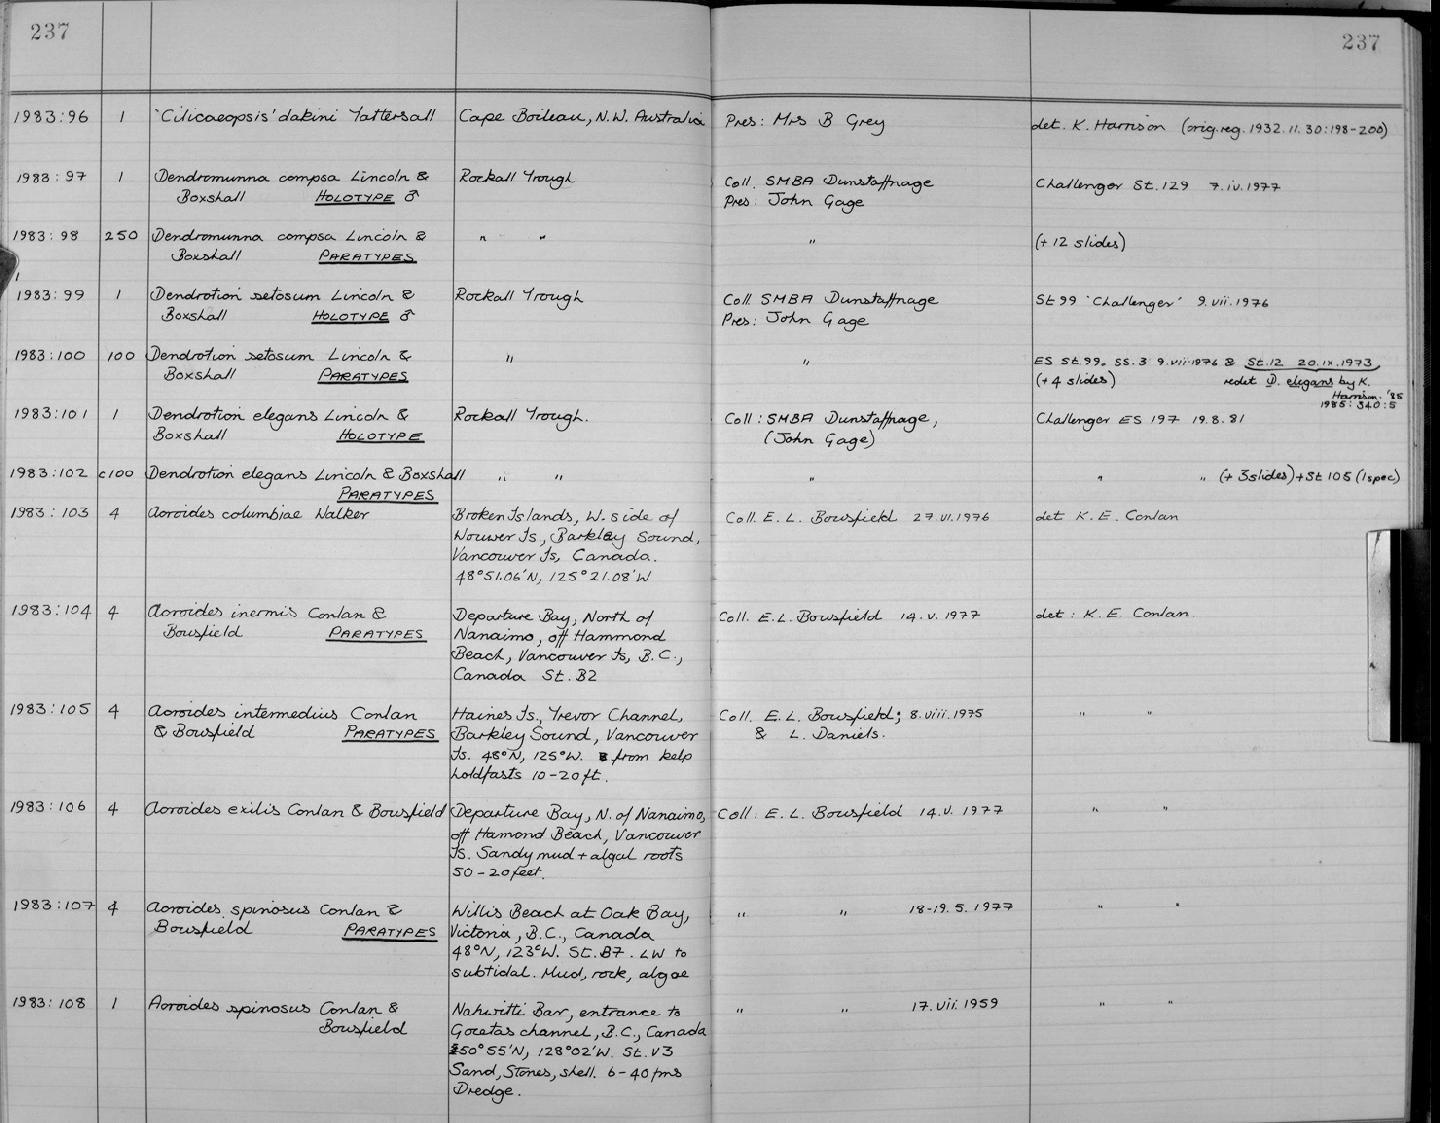 237
237
1983:96 1 'Cilicaeopsis' dakini Tattersall Cape Boileau, N.W. Australia Pres: Mrs B Grey det. K. Harrison (orig.reg. 1932.11.30:198-200)
1983:97 1 Dendromunna compsa Lincoln & Rockall Trough Coll. SMBA Dunstaffnage Challenger St.129 7.iv.1977
Boxshall HOLOTYPE ♂ Pres: John Gage
1983:98 250 Dendromunna compsa Lincoln & " " " (+ 12 slides)
Boxshall PARATYPES
1983:99 1 Dendrotion setosum Lincoln & Rockall Trough Coll. SMBA Dunstaffnage St 99 'Challenger' 9.vii.1976
Boxshall HOLOTYPE ♂ Pres: John Gage
1983:100 100 Dendrotion setosum Lincoln & " " ES St.99. SS.3 9.vii.1976 & St.12 20.ix.1973
Boxshall PARATYPES (+ 4 slides) redet D. elegans by K.
Harrison '85
1985:340:5
1983:101 1 Dendrotion elegans Lincoln & Rockall Trough. Coll: SMBA Dunstaffnage, Challenger ES 197 19.8.81
Boxshall HOLOTYPE (John Gage)
1983:102 c100 Dendrotion elegans Lincoln & Boxshall " " " " " (+ 3 slides) + St 105 (1 spec)
PARATYPES
1983:103 4 Aoroides columbiae Walker Broken Islands, W. side of Coll. E.L. Bousfield 27.VI.1976 det K.E. Conlan
Wouwer Is, Barkley Sound,
Vancouver Is, Canada.
48°51.06'N, 125°21.08'W
1983:104 4 Aoroides inermis Conlan & Departure Bay, North of Coll. E.L. Bousfield 14.v.1977 det: K.E. Conlan.
Bousfield PARATYPES Nanaimo, off Hammond
Beach, Vancouver Is, B.C.,
Canada St. B2
1983:105 4 Aoroides intermedius Conlan Haines Is., Trevor Channel, Coll. E.L. Bousfield; 8.viii.1975 " "
& Bousfield PARATYPES Barkley Sound, Vancouver & L. Daniels.
Is. 48°N, 125°W. from kelp
holdfasts 10-20 ft.
1983:106 4 Aoroides exilis Conlan & Bousfield Departure Bay, N. of Nanaimo, Coll. E.L. Bousfield 14.V.1977 " "
off Hamond Beach, Vancouver
Is. Sandy mud + algal roots
50-20 feet.
1983:107 4 Aoroides spinosus Conlan & Willis Beach at Oak Bay, " " 18-19.5.1977 " "
Bousfield PARATYPES Victoria, B.C., Canada
48°N, 123°W. St. B7. LW to
subtidal. Mud, rock, algae
1983:108 1 Aoroides spinosus Conlan & Nahwitti Bar, entrance to " " 17.vii.1959 " "
Bousfield Goletas channel, B.C., Canada
50°55'N, 128°02'W. St. V3
Sand, Stones, shell. 6-40 fms
Dredge.